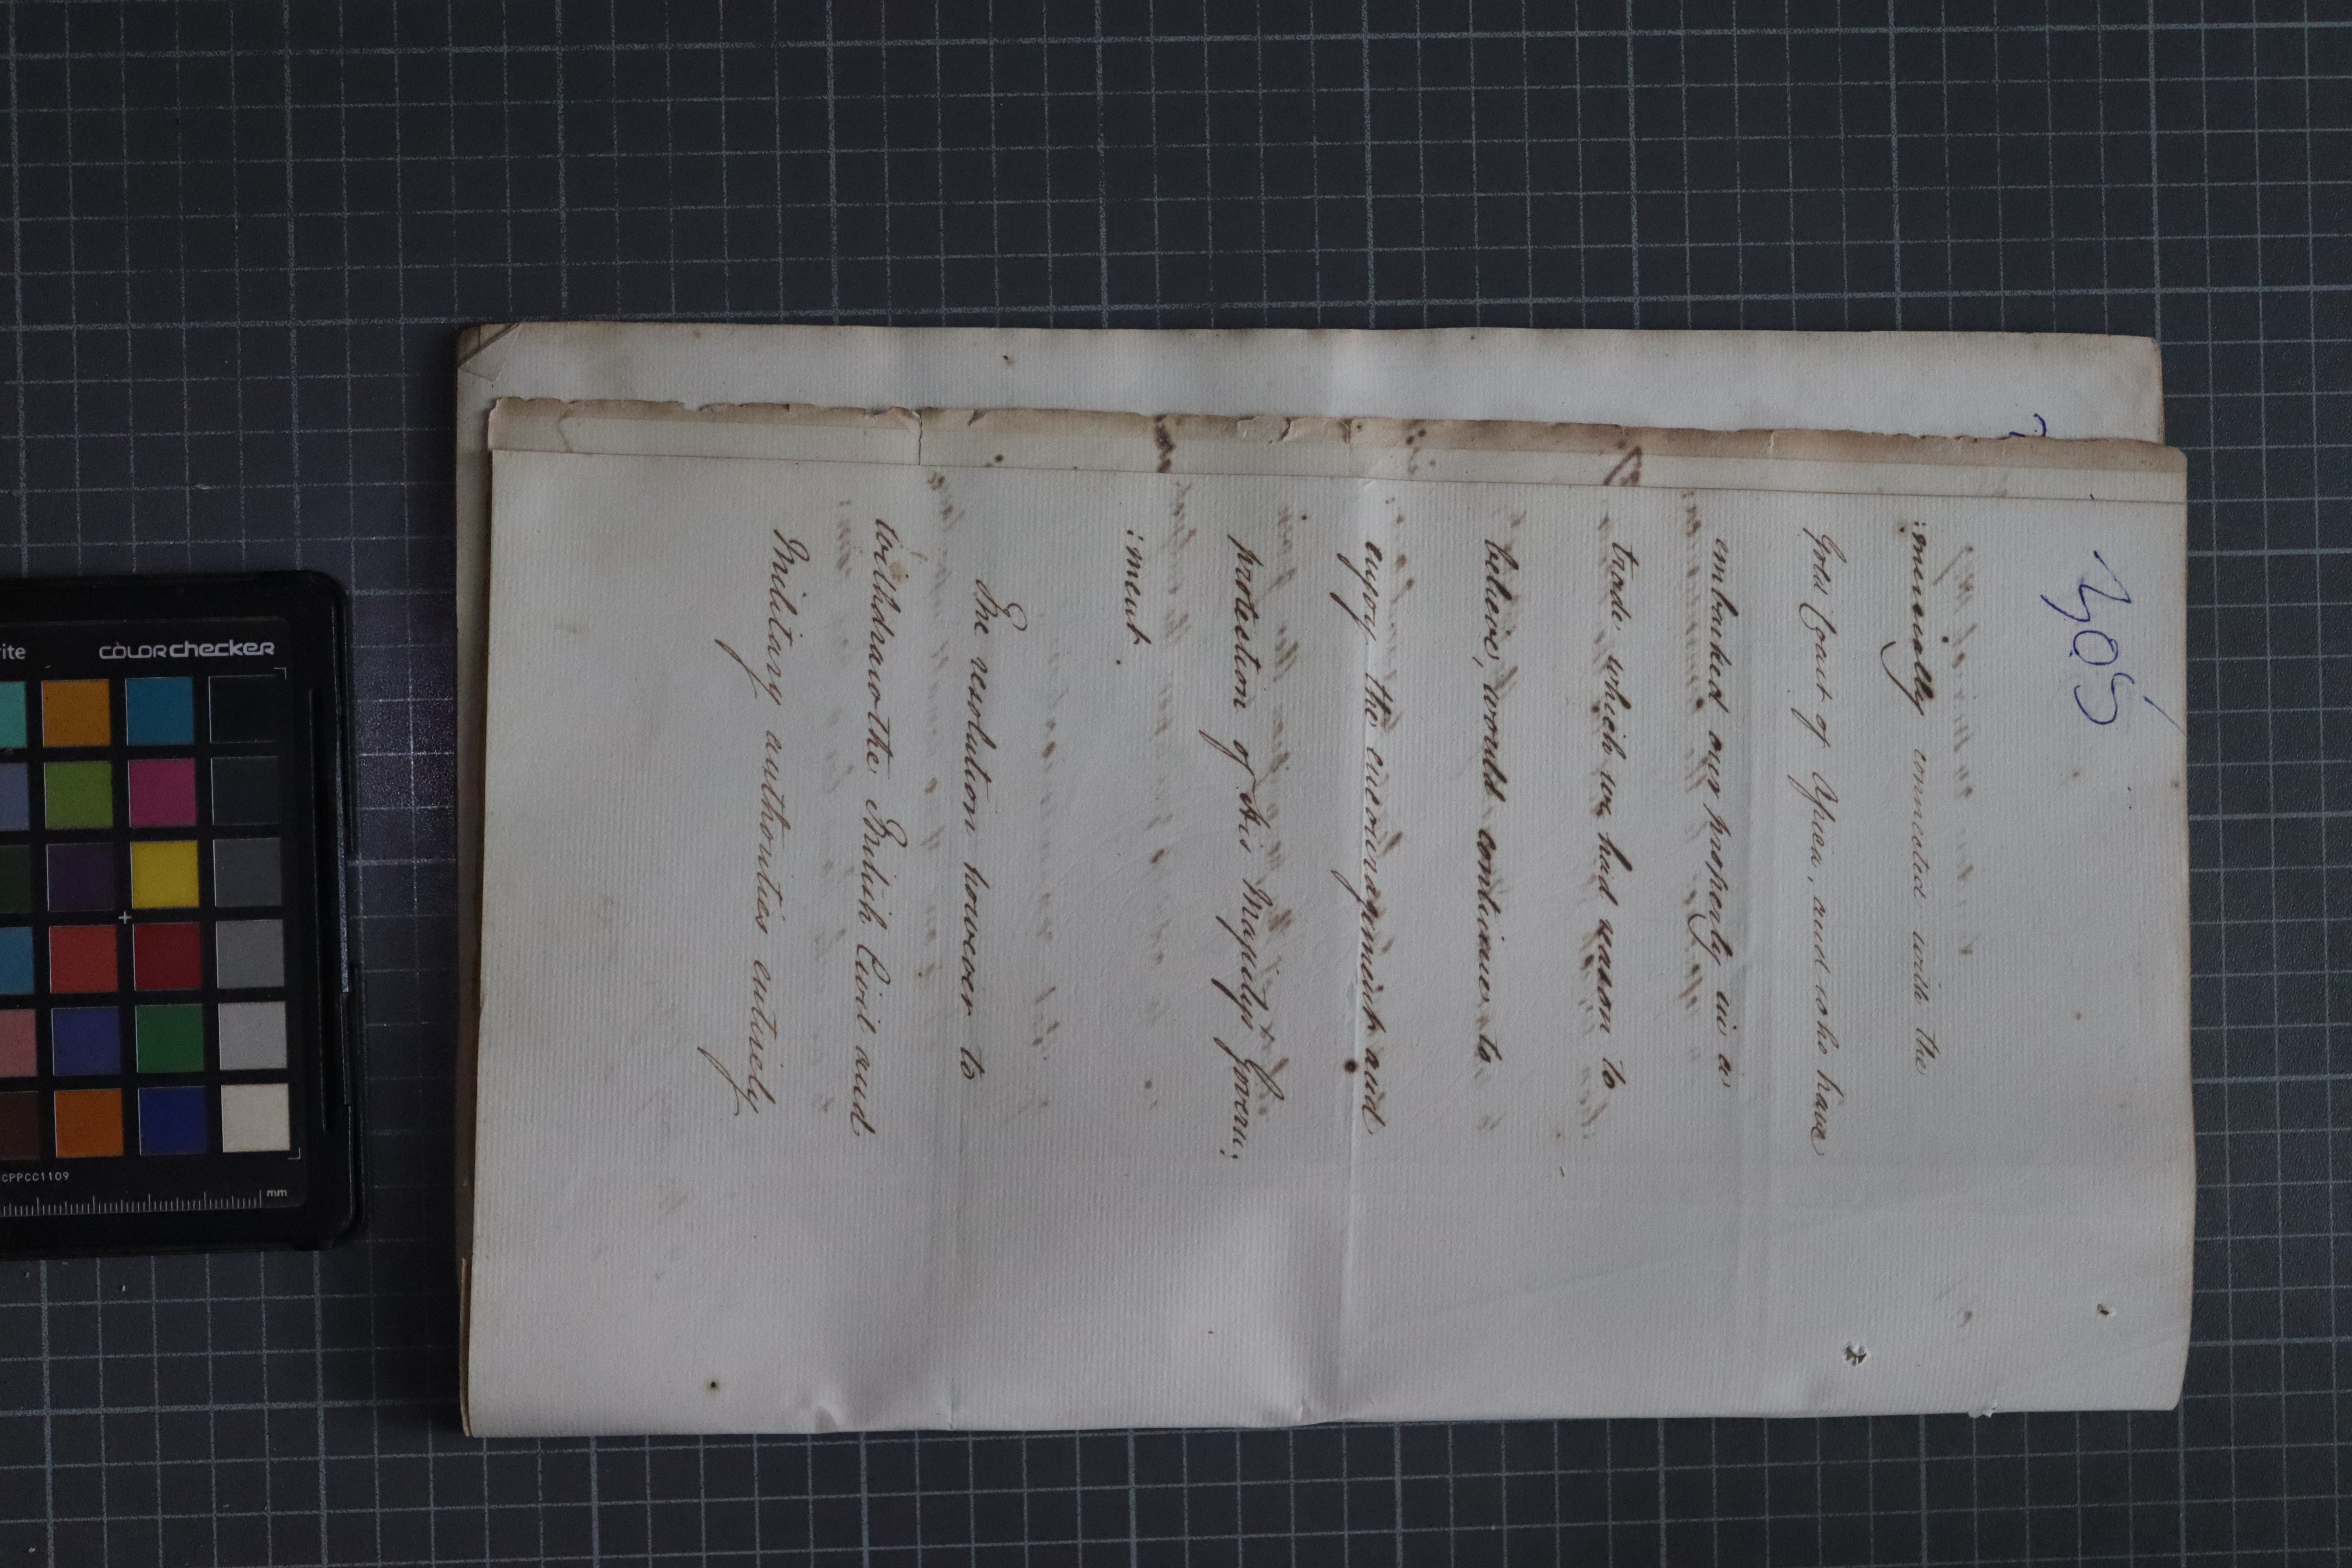 305
:mercially connected with the
Gold Coast of Africa, and who have
embarked our property in a
trade which we had reason to
believe, would continue to
enjoy the encouragement and
protection of His Majesty's Govern:
:ment.
The resolution however to
withdraw the British Civil and
Military authorities entirely
colorchecker
CPPCC1109
mm